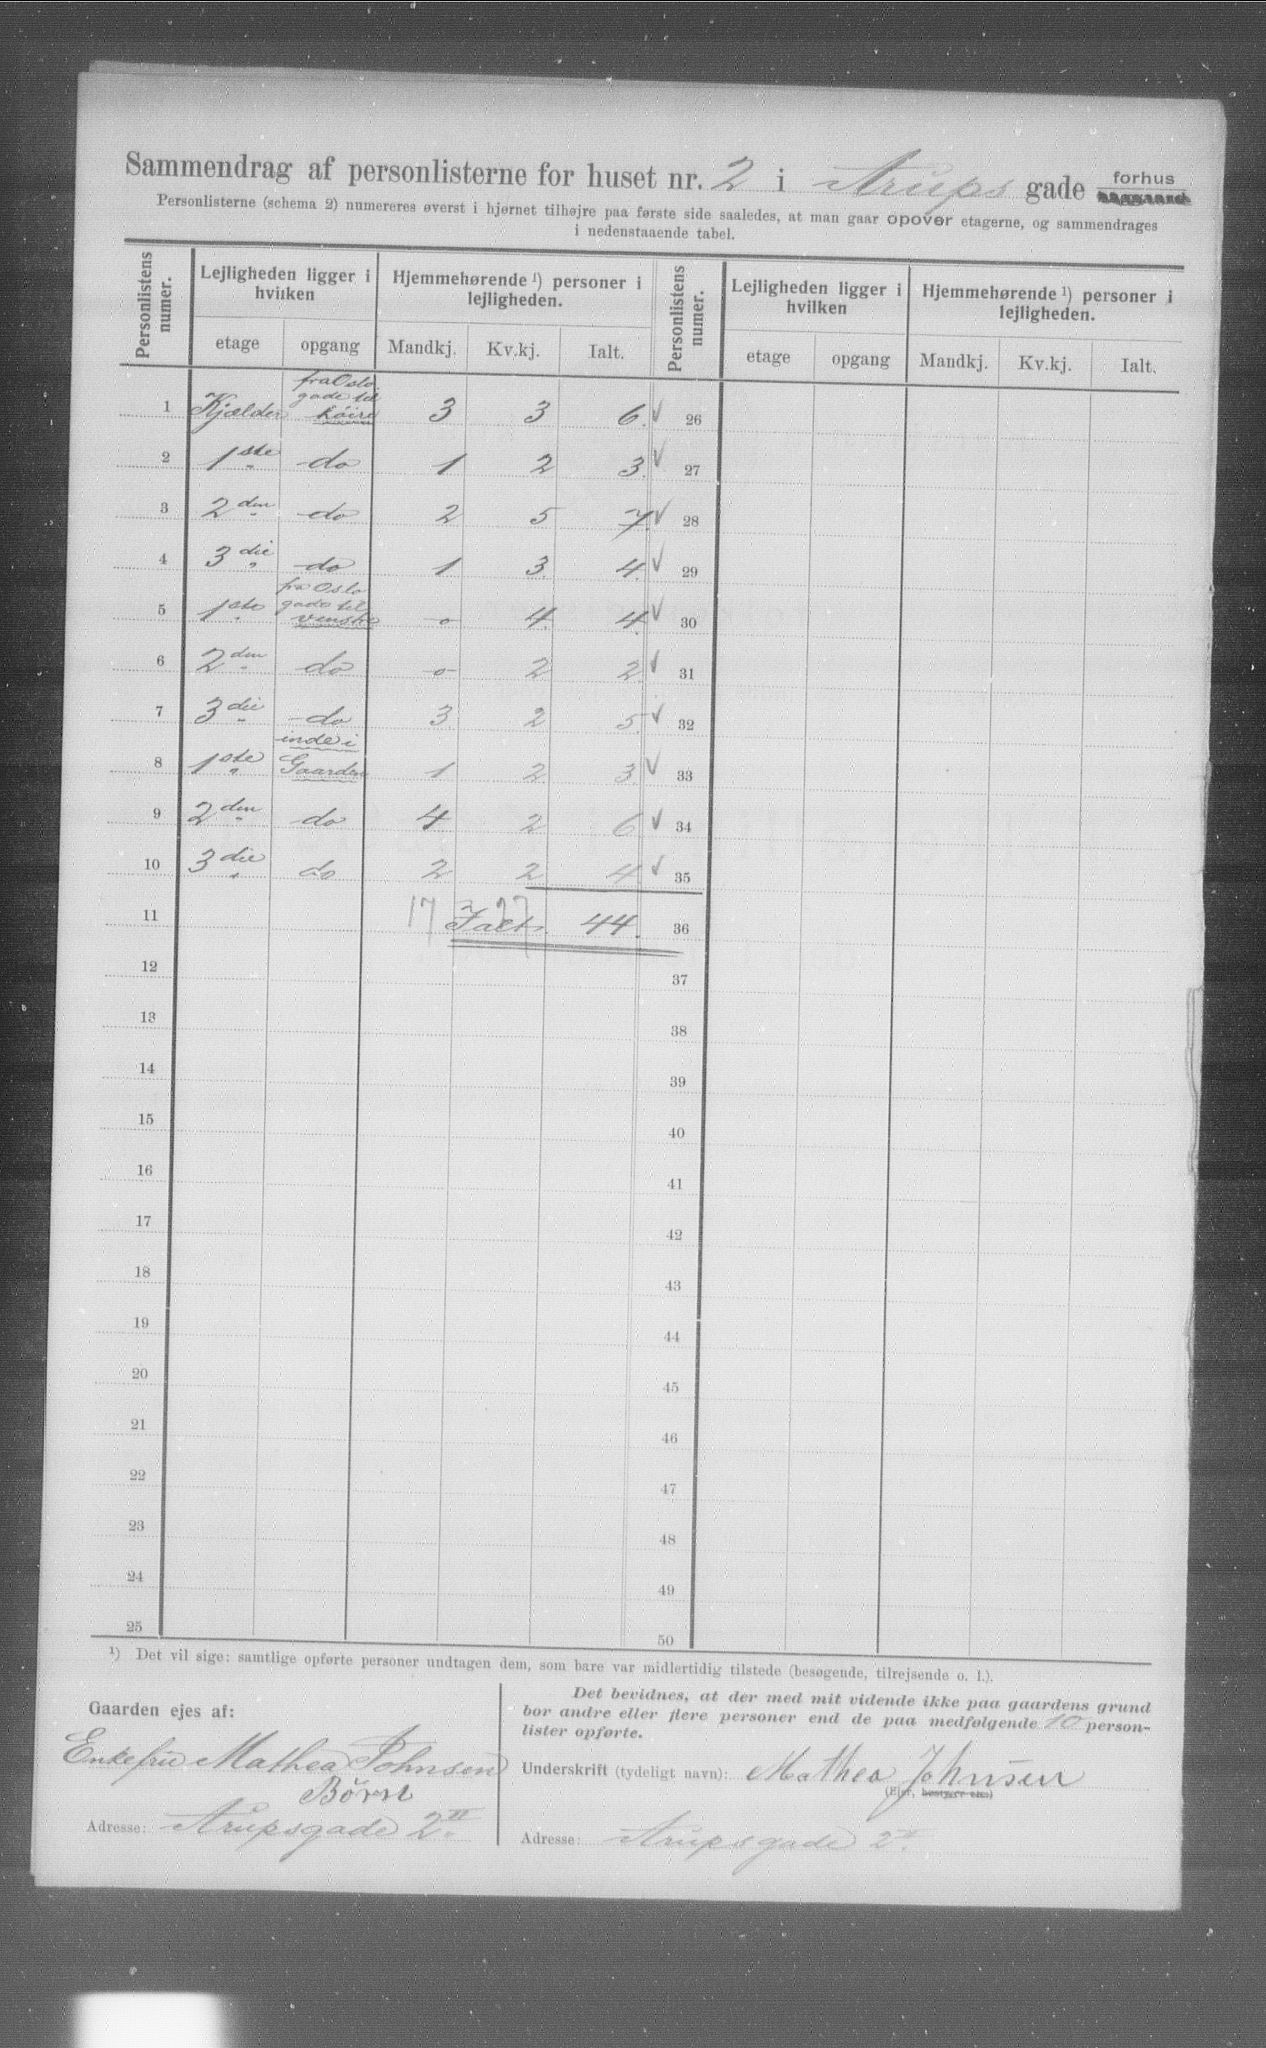 Sammendrag af personlisterne for huset nr. 2 i Arups gade forhus
Personlisterne (schema 2) numereres øverst i hjørnet tilhøjre paa første side saaledes, at man gaar opover etagerne, og sammendrages
i nedenstaaende tabel.
Personlistens numer. Lejligheden ligger i hvilken Hjemmehørende ¹) personer i lejligheden. Personlistens numer. Lejligheden ligger i hvilken Hjemmehørende ¹) personer i lejligheden.
etage opgang Mandkj. Kv.kj. Ialt. etage opgang Mandkj. Kv.kj. Ialt.
1 Kjælder fra Oslo gade til høire 3 3 6. ✓ 26
2 1ste do 1 2 3. ✓ 27
3 2den do 2 5 7. ✓ 28
4 3die do 1 3. 4. ✓ 29
5 1ste fra Oslo gade til venstre o 4. 4. ✓ 30
6 2den do o 2 2. ✓ 31
7 3die do 3 2 5. ✓ 32
8 1ste inde i Gaarden 1 2 3. ✓ 33
9 2den do 4 2 6 ✓ 34
10 3die do 2 2 4 ✓ 35
11 17 27 Ialt. 44. 36
12 37
13 38
14 39
15 40
16 41
17 42
18 43
19 44
20 45
21 46
22 47
23 48
24 49
25 50
¹) Det vil sige: samtlige opførte personer undtagen dem, som bare var midlertidig tilstede (besøgende, tilrejsende o. l.).
Gaarden ejes af:
Enkefru Mathea Johnsen
Børn
Adresse: Arupsgade 2 II
Det bevidnes, at der med mit vidende ikke paa gaardens grund
bor andre eller flere personer end de paa medfølgende 10 person-
lister opførte.
Underskrift (tydeligt navn): Mathea Johnsen
(Ejer, bestyrer etc.)
Adresse: Arupsgade 2 II